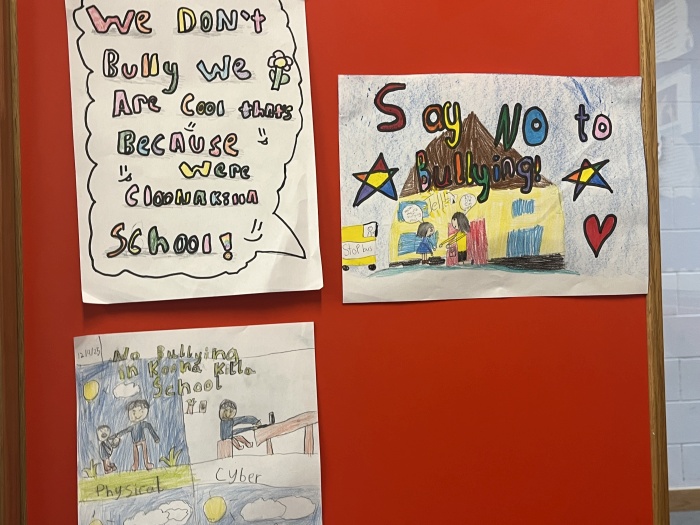 We DON't
Bully We
Are Cool that's
BecAUSe
Were
CloonAKillA
School!
Say NO to
Bullying!
Stop bus
No Bullying
in
Killa
School
Physical
Cyber